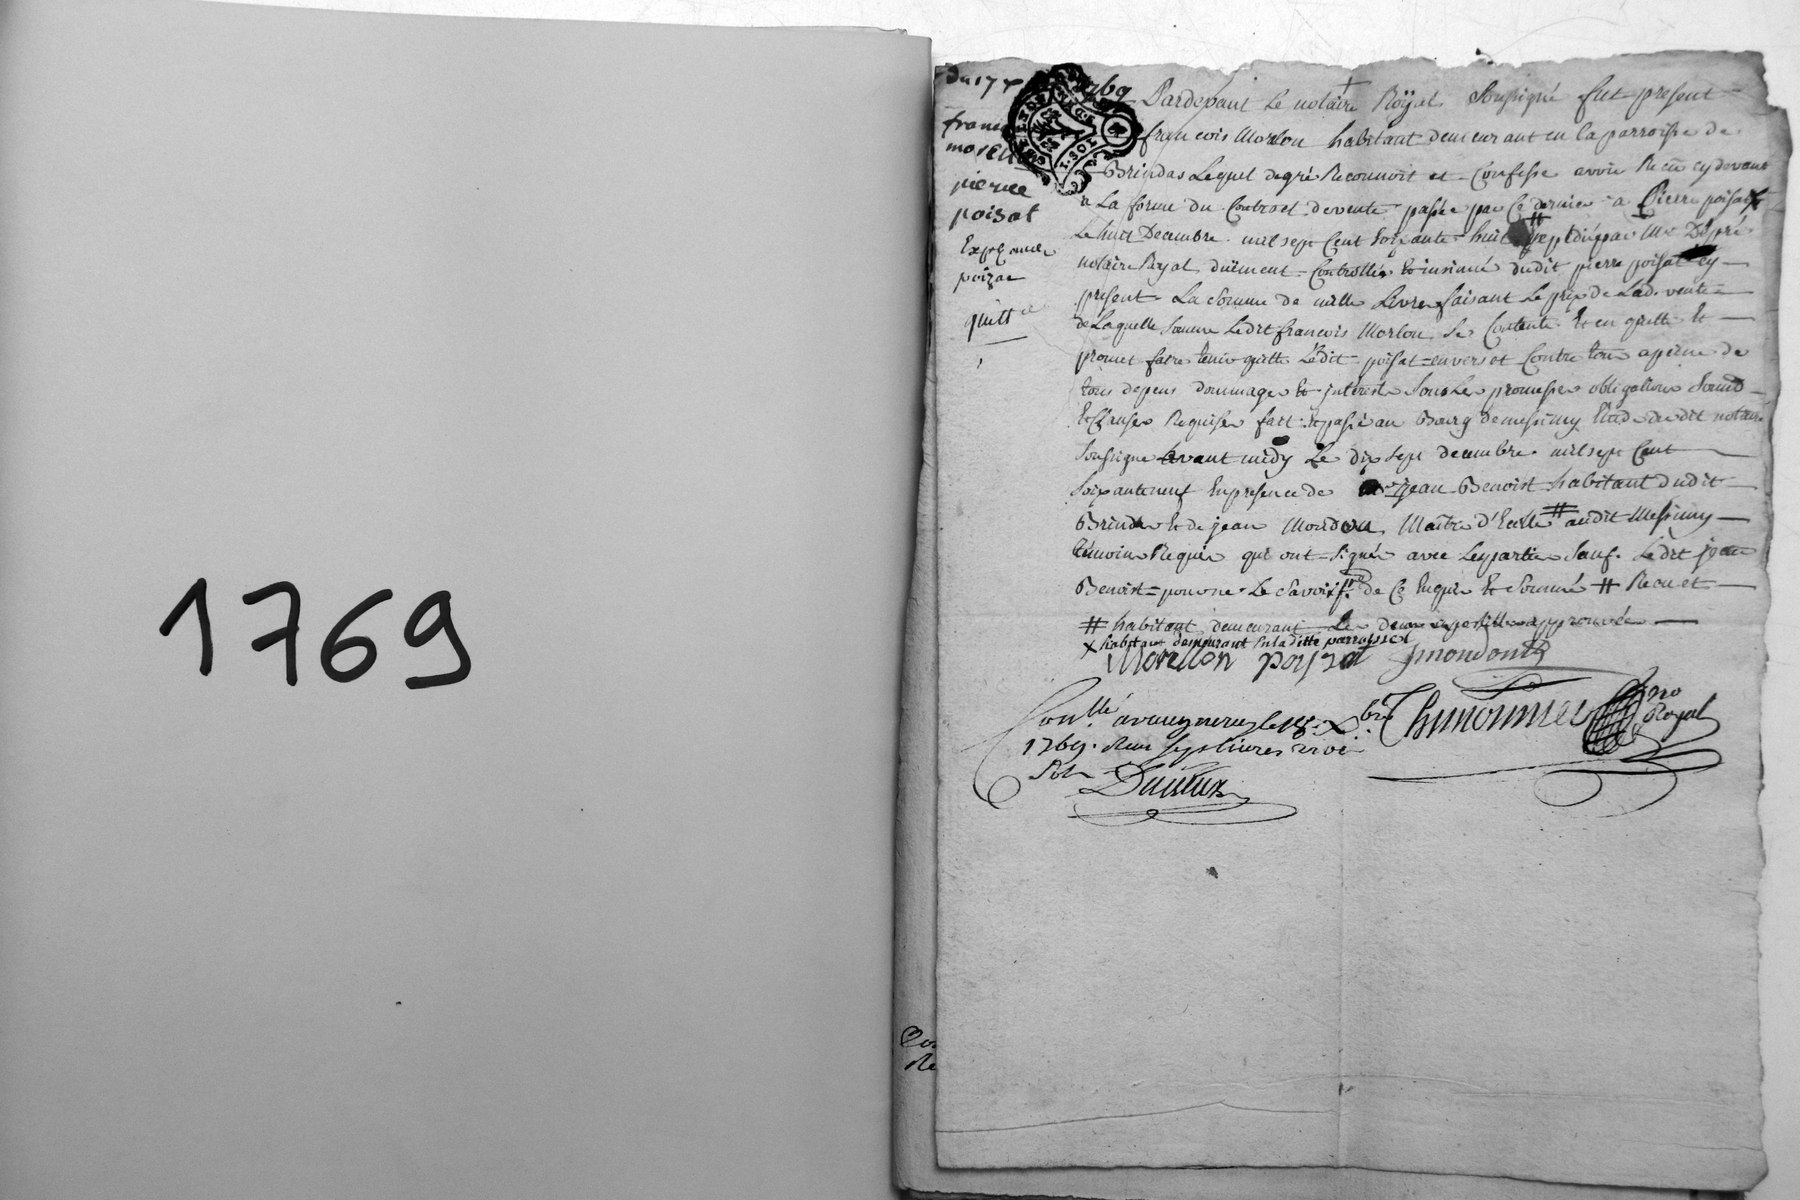 1769
du 17 x 1769
moreton
pierre
poisat
Expedie
poizat
quitt.ce
Pardevant Le notaire Royal Soussigné fut present
francois Morlon habitant demeurant en la parroisse de
Brindas Lequel de gré Reconnoit et Confesse avoir Receu cy devant
a La forme du Contract de vente passée par Ce dernier a Pierre poisat x
Le huit Decembre mil sept Cent soixante huit par Me Dupré
notaire Royal düement Controllée Et insinué dudit pierre poisat cy
present La Somme de mille Livres faisant Le prix de Lad. vente
de Laquelle Somme Ledit francois Morlon Se Contente Et en quitte Et
promet faire tenir quitte Ledit poisat envers et Contre tous a peine de
tous depens dommages Et interest Sous Les promesses obligations Soumis.
Et Clauses Requises fait Et passé au Bourg de messimy Etude dudit notaire
Soussigne avant midy Le dix sept decembre mil sept Cent
Soixante neuf En presence de jean Benoist habitant dudit
Brindas Et de jean Mondon Maitre d'Ecolle # audit Messimy
témoins Requis qui ont signé avec Les parties Sauf Ledit jean
Benoist pour ne Le Savoir f.re de Ce Enquis Et Sommé # Receu et
# habitant demeurant Les deux apostilles approuvées
x habitant demeurant En laditte parroisse
Morellon poyzat Jmondon
Contllé a vaugneray le 18 Xbre
1769. Reçu sept livres
Sols
no Royal